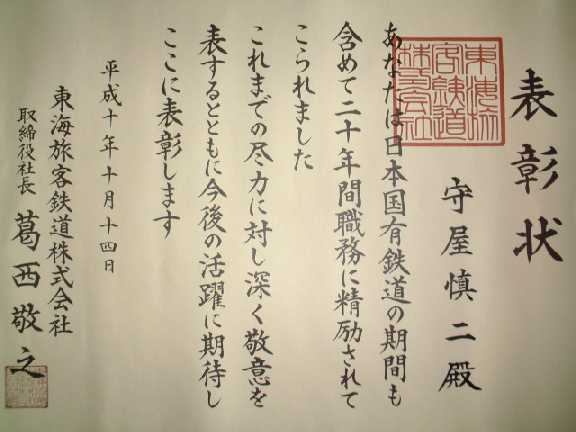 表彰状
守屋慎二殿
あなたは日本国有鉄道の期間も
含めて二十年間職務に精励されて
こられました
これまでの尽力に対し深く敬意を
表するとともに今後の活躍に期待し
ここに表彰します
平成十年十月十四日
東海旅客鉄道株式会社
取締役社長 葛西敬之